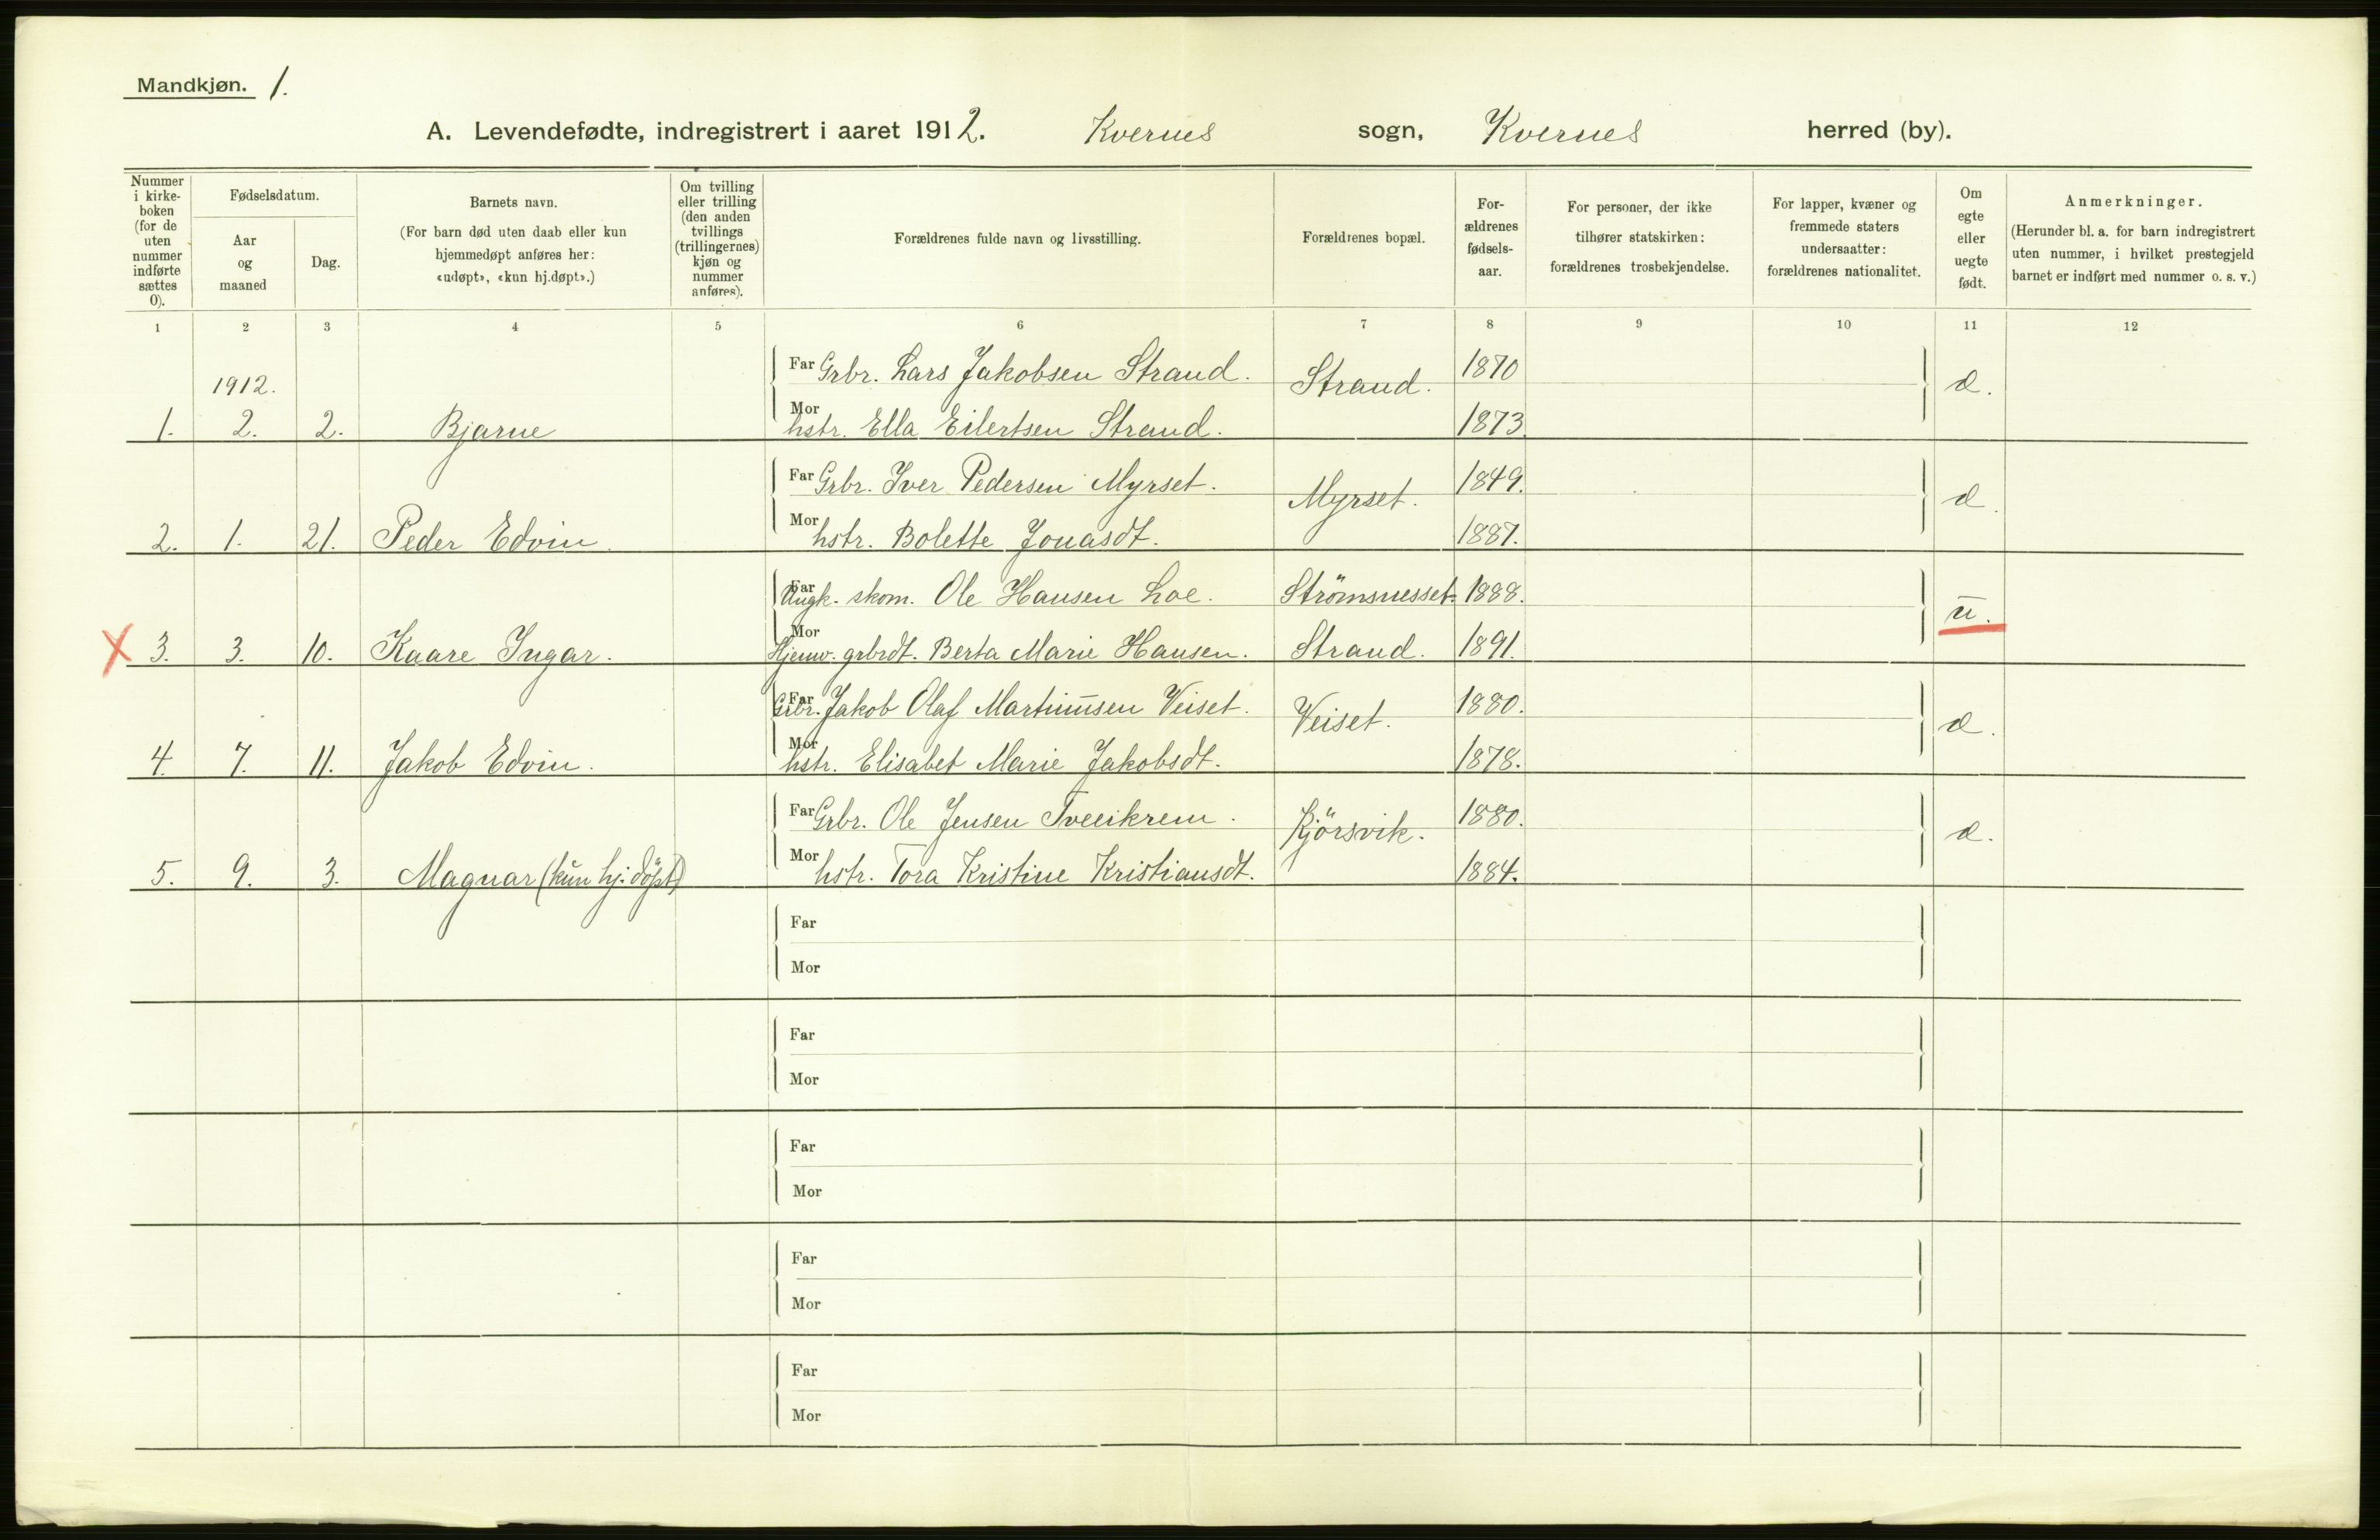 Mandkjøn. 1.
A. Levendefødte, indregistrert i aaret 1912. Kvernes sogn, Kvernes herred (by).
Nummer i kirke-boken (for de uten nummer indførte sættes 0).
Fødselsdatum.
Aar og maaned
Dag.
Barnets navn.
(For barn død uten daab eller kun hjemmedøpt anføres her: «udøpt», «kun hj.døpt».)
Om tvilling eller trilling (den anden tvillings (trillingernes) kjøn og nummer anføres).
Forældrenes fulde navn og livsstilling.
Forældrenes bopæl.
For-ældrenes fødsels-aar.
For personer, der ikke tilhører statskirken: forældrenes trosbekjendelse.
For lapper, kvæner og fremmede staters undersaatter: forældrenes nationalitet.
Om egte eller uegte født.
Anmerkninger.
(Herunder bl. a. for barn indregistrert uten nummer, i hvilket prestegjeld barnet er indført med nummer o. s. v.)
1 2 3 4 5 6 7 8 9 10 11 12
1912.
Far Grbr. Lars Jakobsen Strand. Strand. 1870 æ.
1. 2. 2. Bjarne Mor hstr. Ella Eilertsen Strand. 1873.
Far Grbr. Iver Pedersen Myrset. Myrset. 1849. æ.
2. 1. 21. Peder Edvin. Mor hstr. Bolette Jonasdt. 1887.
Far Ungk. skom. Ole Hansen Loe. Strömsnesset. 1888. ū.
X 3. 3. 10. Kaare Ingar. Mor Hjemv. grbrdt. Berta Marie Hansen. Strand. 1891.
Far Grbr. Jakob Olaf Martinūsen Veiset. Veiset. 1880. æ.
4. 7. 11. Jakob Edvin. Mor hstr. Elisabet Marie Jakobsdt. 1878.
Far Grbr. Ole Jensen Tveeikrem. Kjörsvik. 1880. æ.
5. 9. 3. Magnar (kūn hj. döpt) Mor hstr. Tora Kristine Kristiansdt. 1884.
Far
Mor
Far
Mor
Far
Mor
Far
Mor
Far
Mor